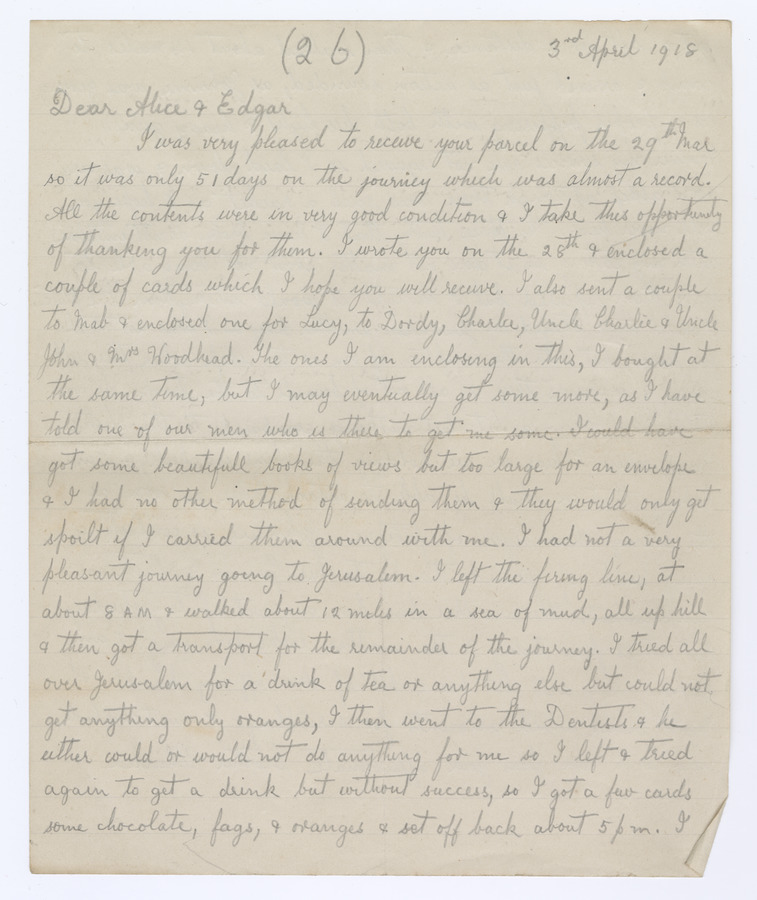 (26)
3rd April 1918
Dear Alice & Edgar
I was very pleased to receive your parcel on the 29th Mar
so it was only 51 days on the journey which was almost a record.
All the contents were in very good condition & I take this opportunity
of thanking you for them. I wrote you on the 28th & enclosed a
couple of cards which I hope you will receive. I also sent a couple
to Mab & enclosed one for Lucy, to Dordy, Charlie, Uncle Charlie & Uncle
John & Mrs Woodhead. The ones I am enclosing in this, I bought at
the same time, but I may eventually get some more, as I have
told one of our men who is there to get me some. I could have
got some beautifull books of views but too large for an envelope
& I had no other method of sending them & they would only get
spoilt if I carried them around with me. I had not a very
pleasant journey going to Jerusalem. I left the firing line, at
about 8 AM & walked about 12 miles in a sea of mud, all up hill
& then got a transport for the remainder of the journey. I tried all
over Jerusalem for a drink of tea or anything else but could not
get anything only oranges, I then went to the Dentists & he
either could or would not do anything for me so I left & tried
again to get a drink but without success, so I got a few cards
some chocolate, fags, & oranges & set off back about 5 pm. I